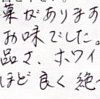 菓がありま
お味でした。
品さ、ホワイ
ほど良く絶